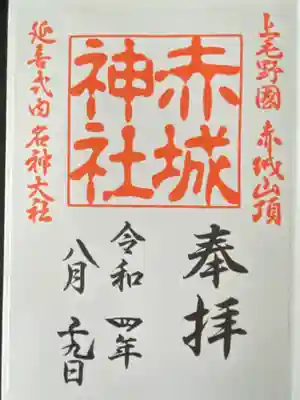 上毛野國 赤城山頂
赤城
神社
延喜式内 名神大社
奉拝
令和 四年
八月 二十九日